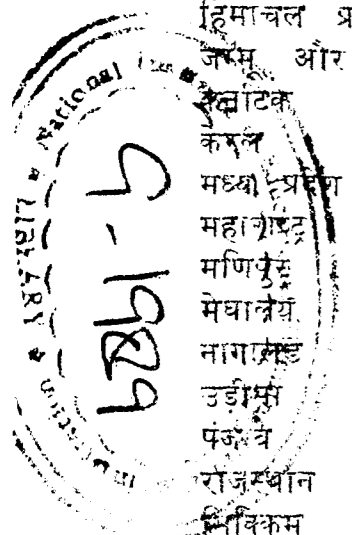 हिमाचल प्र
जम्मू और
कर्नाटक
केरल
मध्य प्रदेश
महाराष्ट्र
मणिपुर
मेघालय
नागालैंड
उड़ीसा
पंजाब
राजस्थान
सिक्किम
National
LIBRARY